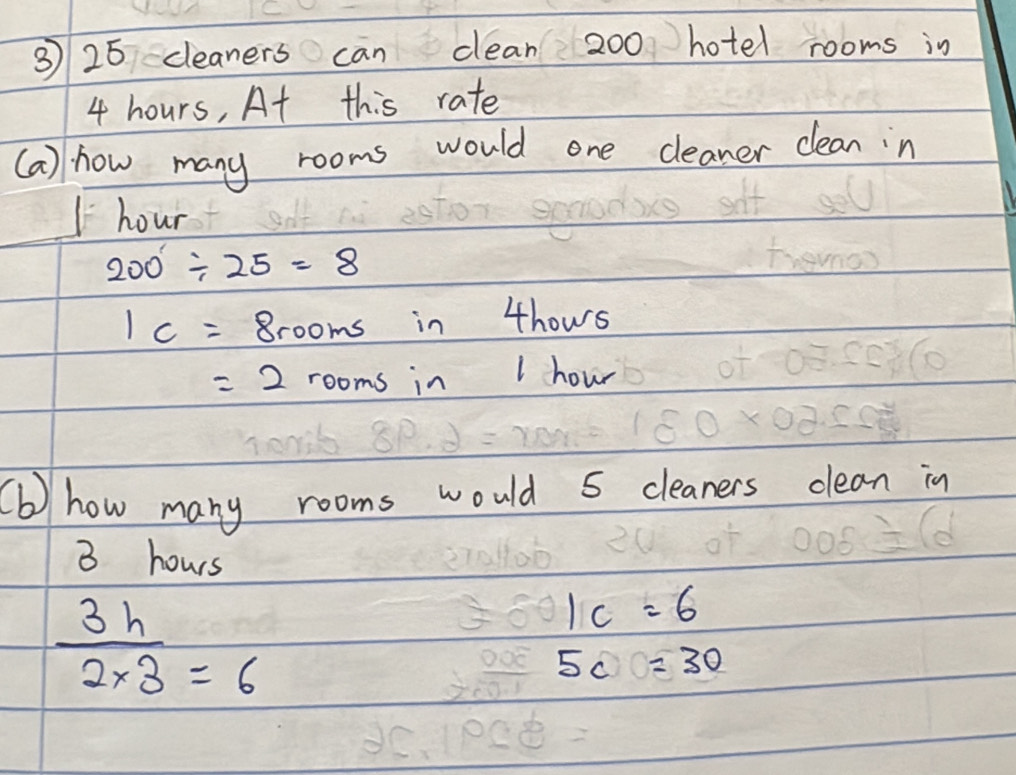 3) 25 cleaners can clean 200 hotel rooms in
4 hours, At this rate
(a) how many rooms would one cleaner clean in
1 hour
200 ÷ 25 = 8
1 c = 8rooms in 4hours
= 2 rooms in 1 hour
(b) how many rooms would 5 cleaners clean in
3 hours
3 h
2×3 = 6
1c = 6
5c = 30